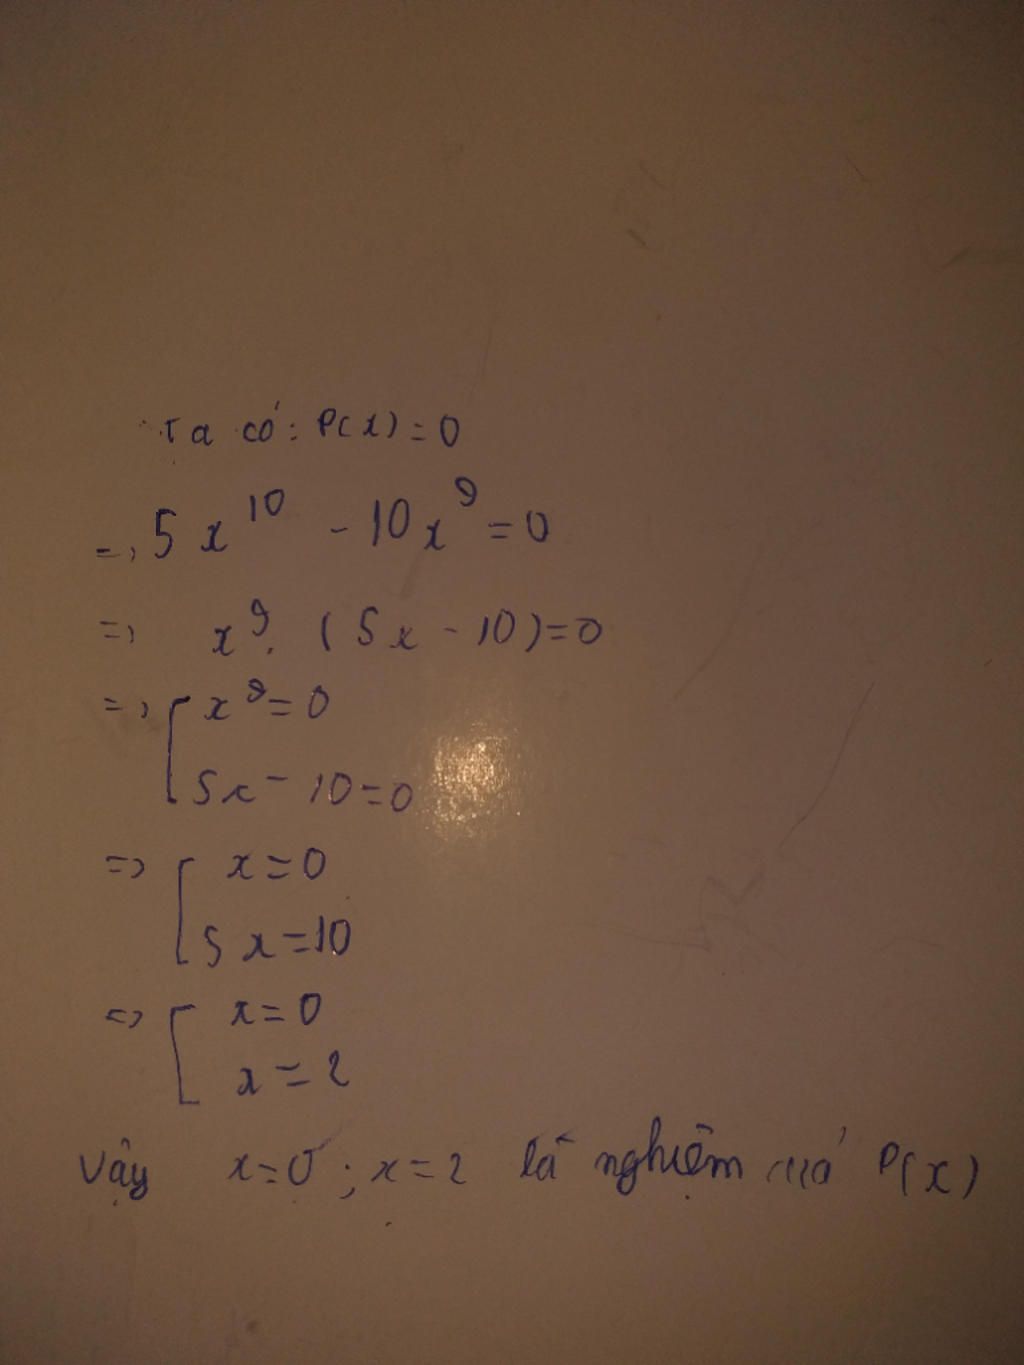 Ta có: P(x) = 0
=> 5x¹⁰ - 10x⁹ = 0
=> x⁹. (5x - 10) = 0
=> [ x⁹ = 0
5x - 10 = 0
=> [ x = 0
5x = 10
=> [ x = 0
x = 2
Vậy x = 0 ; x = 2 là nghiệm của P(x)